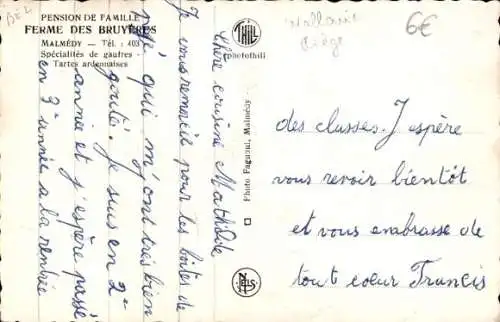 PENSION DE FAMILLE
FERME DES BRUYÈRES
MALMÉDY — Tél. : 403
Spécialités de gaufres
Tartes ardennaises
BEL
THILL
photothill
Wallonie
Liège
6€
Photo Fagnoul, Malmédy
NELS
Chère cousine Mathilde
Je vous remercie pour les boites de
qui m'ont très bien
goûté. Je suis en 2e
année et j'espère passé
en 3e année a la rentrée
des classes. J'espère
vous revoir bientôt
et vous embrasse de
tout coeur Francis